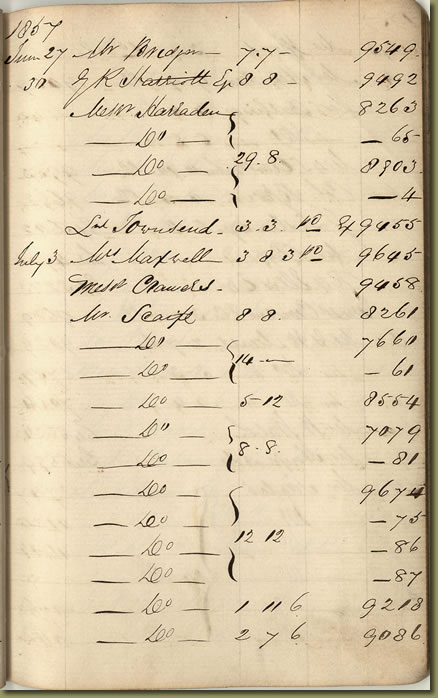 1857
June 27 Mr Bridger 7.7- 9549
30 J R Harriott Eq 8 8 - 9492
Messrs Harraden 8263
Do - 65
Do 29.8 8303
Do - 4
Lord Townsend - 3.3. 9455
July 3 Mrs Maxwell 3 8 3 9645
Messrs Chawles - 9458
Mr. Scaife 8 8. 8261
Do 7660
Do 14 - 61
Do 5-12 8554
Do 7079
Do 8.8. - 81
Do 9674
Do - 75
Do 12 12 - 86
Do - 87
Do 1 11 6 9218
Do 2 7 6 9086